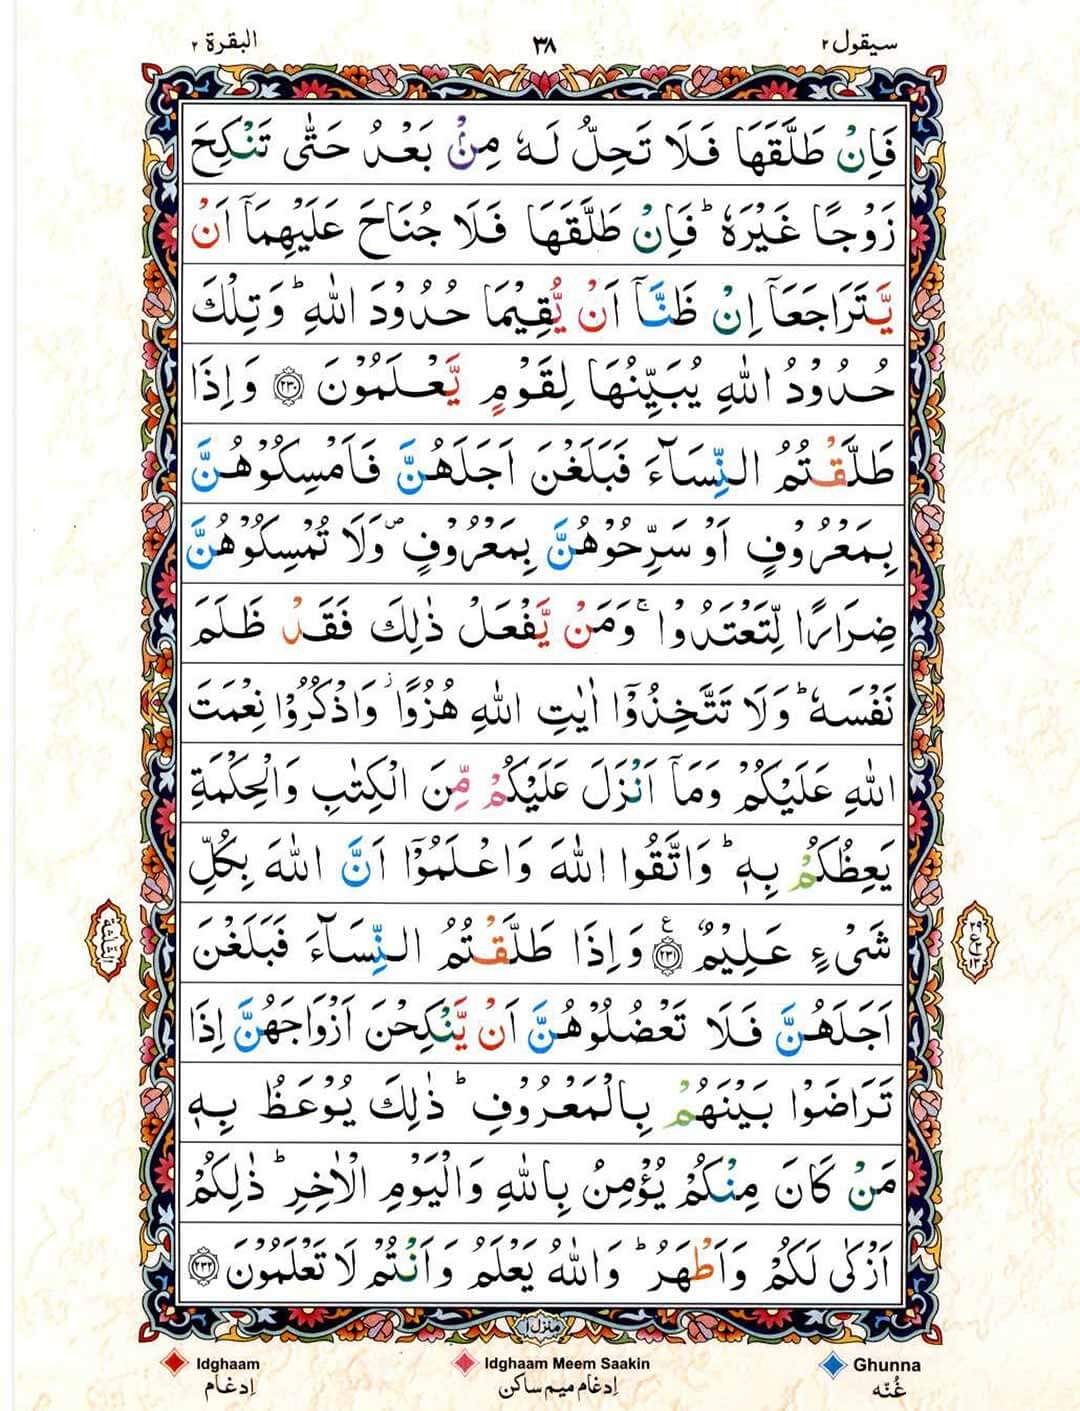 سيقول ٢ ٣٨ البقرة ٢
فَاِنْ طَلَّقَهَا فَلَا تَحِلُّ لَهٗ مِنْۢ بَعْدُ حَتّٰى تَنْكِحَ
زَوْجًا غَيْرَهٗ ؕ فَاِنْ طَلَّقَهَا فَلَا جُنَاحَ عَلَيْهِمَاۤ اَنْ
يَّتَرَاجَعَاۤ اِنْ ظَنَّاۤ اَنْ يُّقِيْمَا حُدُوْدَ اللّٰهِ ؕ وَتِلْكَ
حُدُوْدُ اللّٰهِ يُبَيِّنُهَا لِقَوْمٍ يَّعْلَمُوْنَ ﴿٢٣٠﴾ وَاِذَا
طَلَّقْتُمُ النِّسَآءَ فَبَلَغْنَ اَجَلَهُنَّ فَاَمْسِكُوْهُنَّ
بِمَعْرُوْفٍ اَوْ سَرِّحُوْهُنَّ بِمَعْرُوْفٍ ۪ وَلَا تُمْسِكُوْهُنَّ
ضِرَارًا لِّتَعْتَدُوْا ۚ وَمَنْ يَّفْعَلْ ذٰلِكَ فَقَدْ ظَلَمَ
نَفْسَهٗ ؕ وَلَا تَتَّخِذُوْۤا اٰيٰتِ اللّٰهِ هُزُوًا ۫ وَاذْكُرُوْا نِعْمَتَ
اللّٰهِ عَلَيْكُمْ وَمَاۤ اَنْزَلَ عَلَيْكُمْ مِّنَ الْكِتٰبِ وَالْحِكْمَةِ
يَعِظُكُمْ بِهٖ ؕ وَاتَّقُوا اللّٰهَ وَاعْلَمُوْۤا اَنَّ اللّٰهَ بِكُلِّ
شَىْءٍ عَلِيْمٌ ﴿٢٣١﴾ ع وَاِذَا طَلَّقْتُمُ النِّسَآءَ فَبَلَغْنَ
اَجَلَهُنَّ فَلَا تَعْضُلُوْهُنَّ اَنْ يَّنْكِحْنَ اَزْوَاجَهُنَّ اِذَا
تَرَاضَوْا بَيْنَهُمْ بِالْمَعْرُوْفِ ؕ ذٰلِكَ يُوْعَظُ بِهٖ
مَنْ كَانَ مِنْكُمْ يُؤْمِنُ بِاللّٰهِ وَالْيَوْمِ الْاٰخِرِ ؕ ذٰلِكُمْ
اَزْكٰى لَكُمْ وَاَطْهَرُ ؕ وَاللّٰهُ يَعْلَمُ وَاَنْتُمْ لَا تَعْلَمُوْنَ ﴿٢٣٢﴾
الثلثة
منزل ١
Idghaam Idghaam Meem Saakin Ghunna
إدغام إدغام ميم ساكن غُنّه